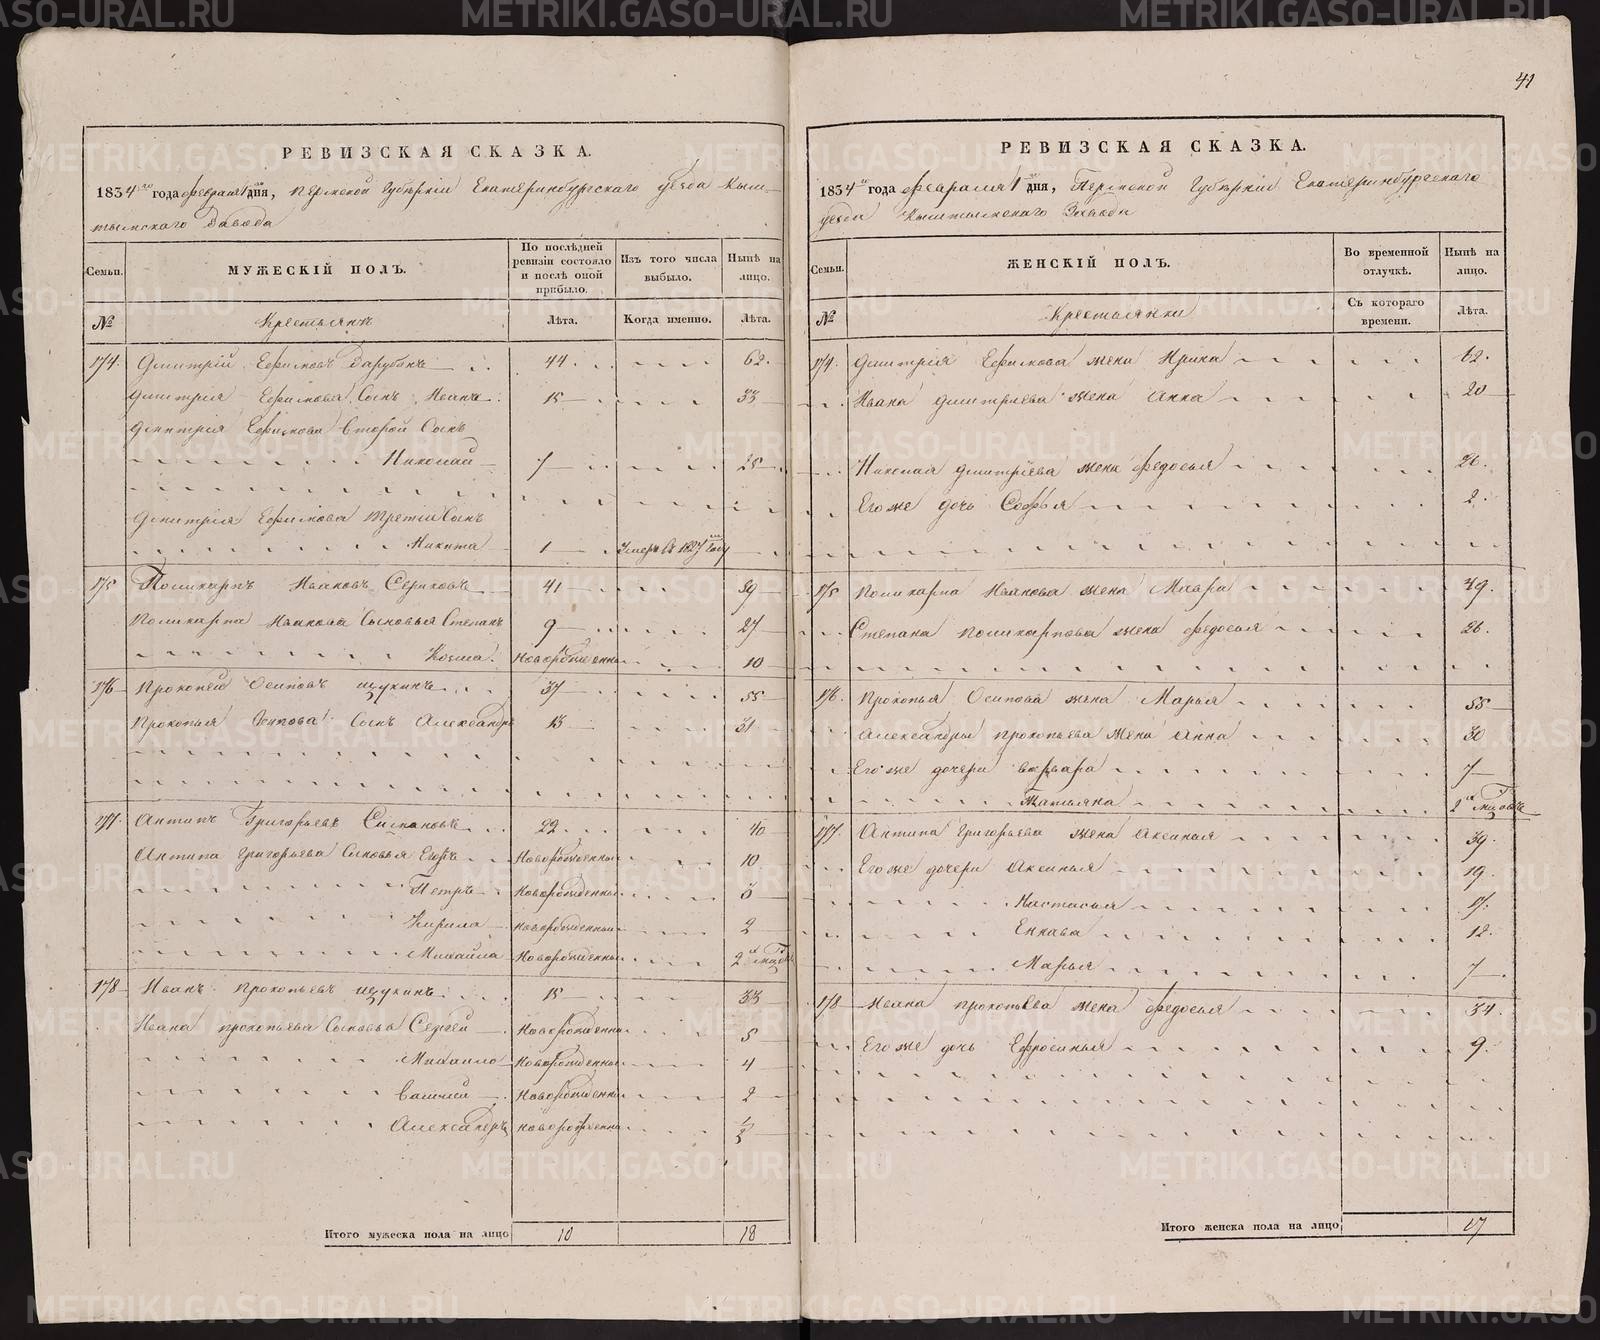 41
РЕВИЗСКАЯ СКАЗКА.
1834го года февраля 1 дня, Пермской Губернiи Екатеринбургскаго уезда Кыш-
тымскаго Завода
Семьи. МУЖЕСКIЙ ПОЛЪ. По послѣдней ревизiи состояло и послѣ оной прибыло. Изъ того числа выбыло. Нынѣ на лицо.
№ Крестьянъ Лѣта. Когда именно. Лѣта.
174. Дмитрiй Ефимовъ 44. 62.
Дмитрiя Ефимова Сынъ Иванъ 15 33
Дмитрiя Ефимова Второй Сынъ
Николай 7 25
Дмитрiя Ефимова Третiй Сынъ
Никита 1 Умеръ въ 1827 году
175 Поликарпъ Ивановъ Серковъ 41 59
Поликарпа Иванова Сыновья Степанъ 9 27
Козма. Новорожденны 10
176 Прокопей Осиповъ Щукинъ 37 55
Прокопья Осипова Сынъ Александръ 13 31
177. Антипъ Григорьевъ 22 40
Антипа Григорьева Сыновья Егоръ Новорожденны 10
Петръ Новорожденны
Кирила Новорожденны 2
Михайла Новорожденны 2
178 Иванъ Прокопьевъ Щукинъ 15 33
Ивана Прокопьева Сыновья Сергей Новорожденны 5
Михайло Новорожденны 4
Василий Новорожденны 2
Александръ Новорожденны 1/2
Итого мужеска пола на лицо 10 18
РЕВИЗСКАЯ СКАЗКА.
1834го года февраля 1 дня, Пермской Губернiи Екатеринбургскаго
уезда Кыштымскаго Завода
Семьи. ЖЕНСКIЙ ПОЛЪ. Во временной отлучкѣ. Нынѣ на лицо.
№ Крестьянки Съ котораго времени. Лѣта.
174. Дмитрiя Ефимова жена Ирина 62.
Ивана Дмитрiева жена Анна 20
Николая Дмитрiева жена Федосья 26.
Его же дочь Софья 2.
175 Поликарпа Иванова жена Мавра 49.
Степана Поликарпова жена Федосья 26.
176. Прокопья Осипова жена Марья 55
Александры Прокопьева жена Анна 30
Его же дочери Варвара 7
Татьяна
177. Антипа Григорьева жена Аксинья 39.
Его же дочери Аксинья 19.
Настасья 17.
12.
Марья 7
178 Ивана Прокопьева жена Федосья 34.
Его же дочь Ефросинья 9.
Итого женска пола на лицо 17
METRIKI.GASO-URAL.RU